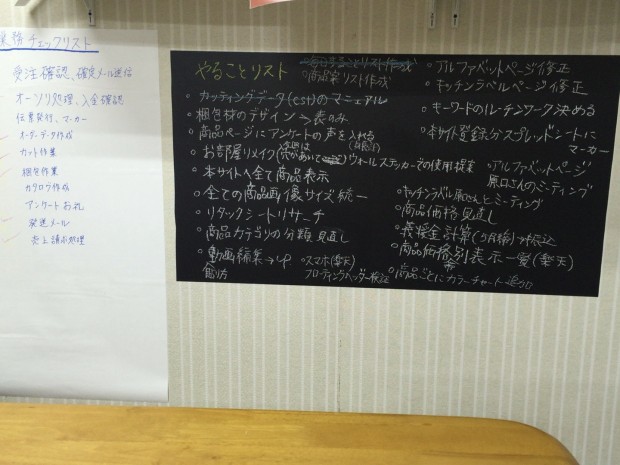 業務チェックリスト
受注確認、確定メール送信
オーソリ処理、入金確認
伝票発行、マーカー
オーダーデータ作成
カット作業
梱包作業
カタログ作成
アンケートお礼
発送メール
売上請求処理
やることリスト
毎日することリスト作成
○商品案リスト作成
○カッティングデータ(cst)のマニュアル
○梱包材のデザイン→表のみ
○商品ページにアンケートの声を入れる
○お部屋リメイク ウォールステッカーでの使用提案
○本サイトへ全て商品表示
○全ての商品画像サイズ統一
○リタックシートリサーチ
○商品カテゴリの分類見直し
○動画編集→UP
○スマホ(楽天)
フローティングヘッダー検証
○アルファベットページ修正
○キッチンラベルページ修正
○キーワードのルーチンワーク決める
○本サイト登録分スプレッドシートに
マーカー
○アルファベットページ
原口さんのミーティング
○キッチンラベル原さんとミーティング
○商品価格見直し
○義援金計算(3ヶ月毎)→振込
○商品価格帯別表示一覧(楽天)
○商品ごとにカラーチャート追加